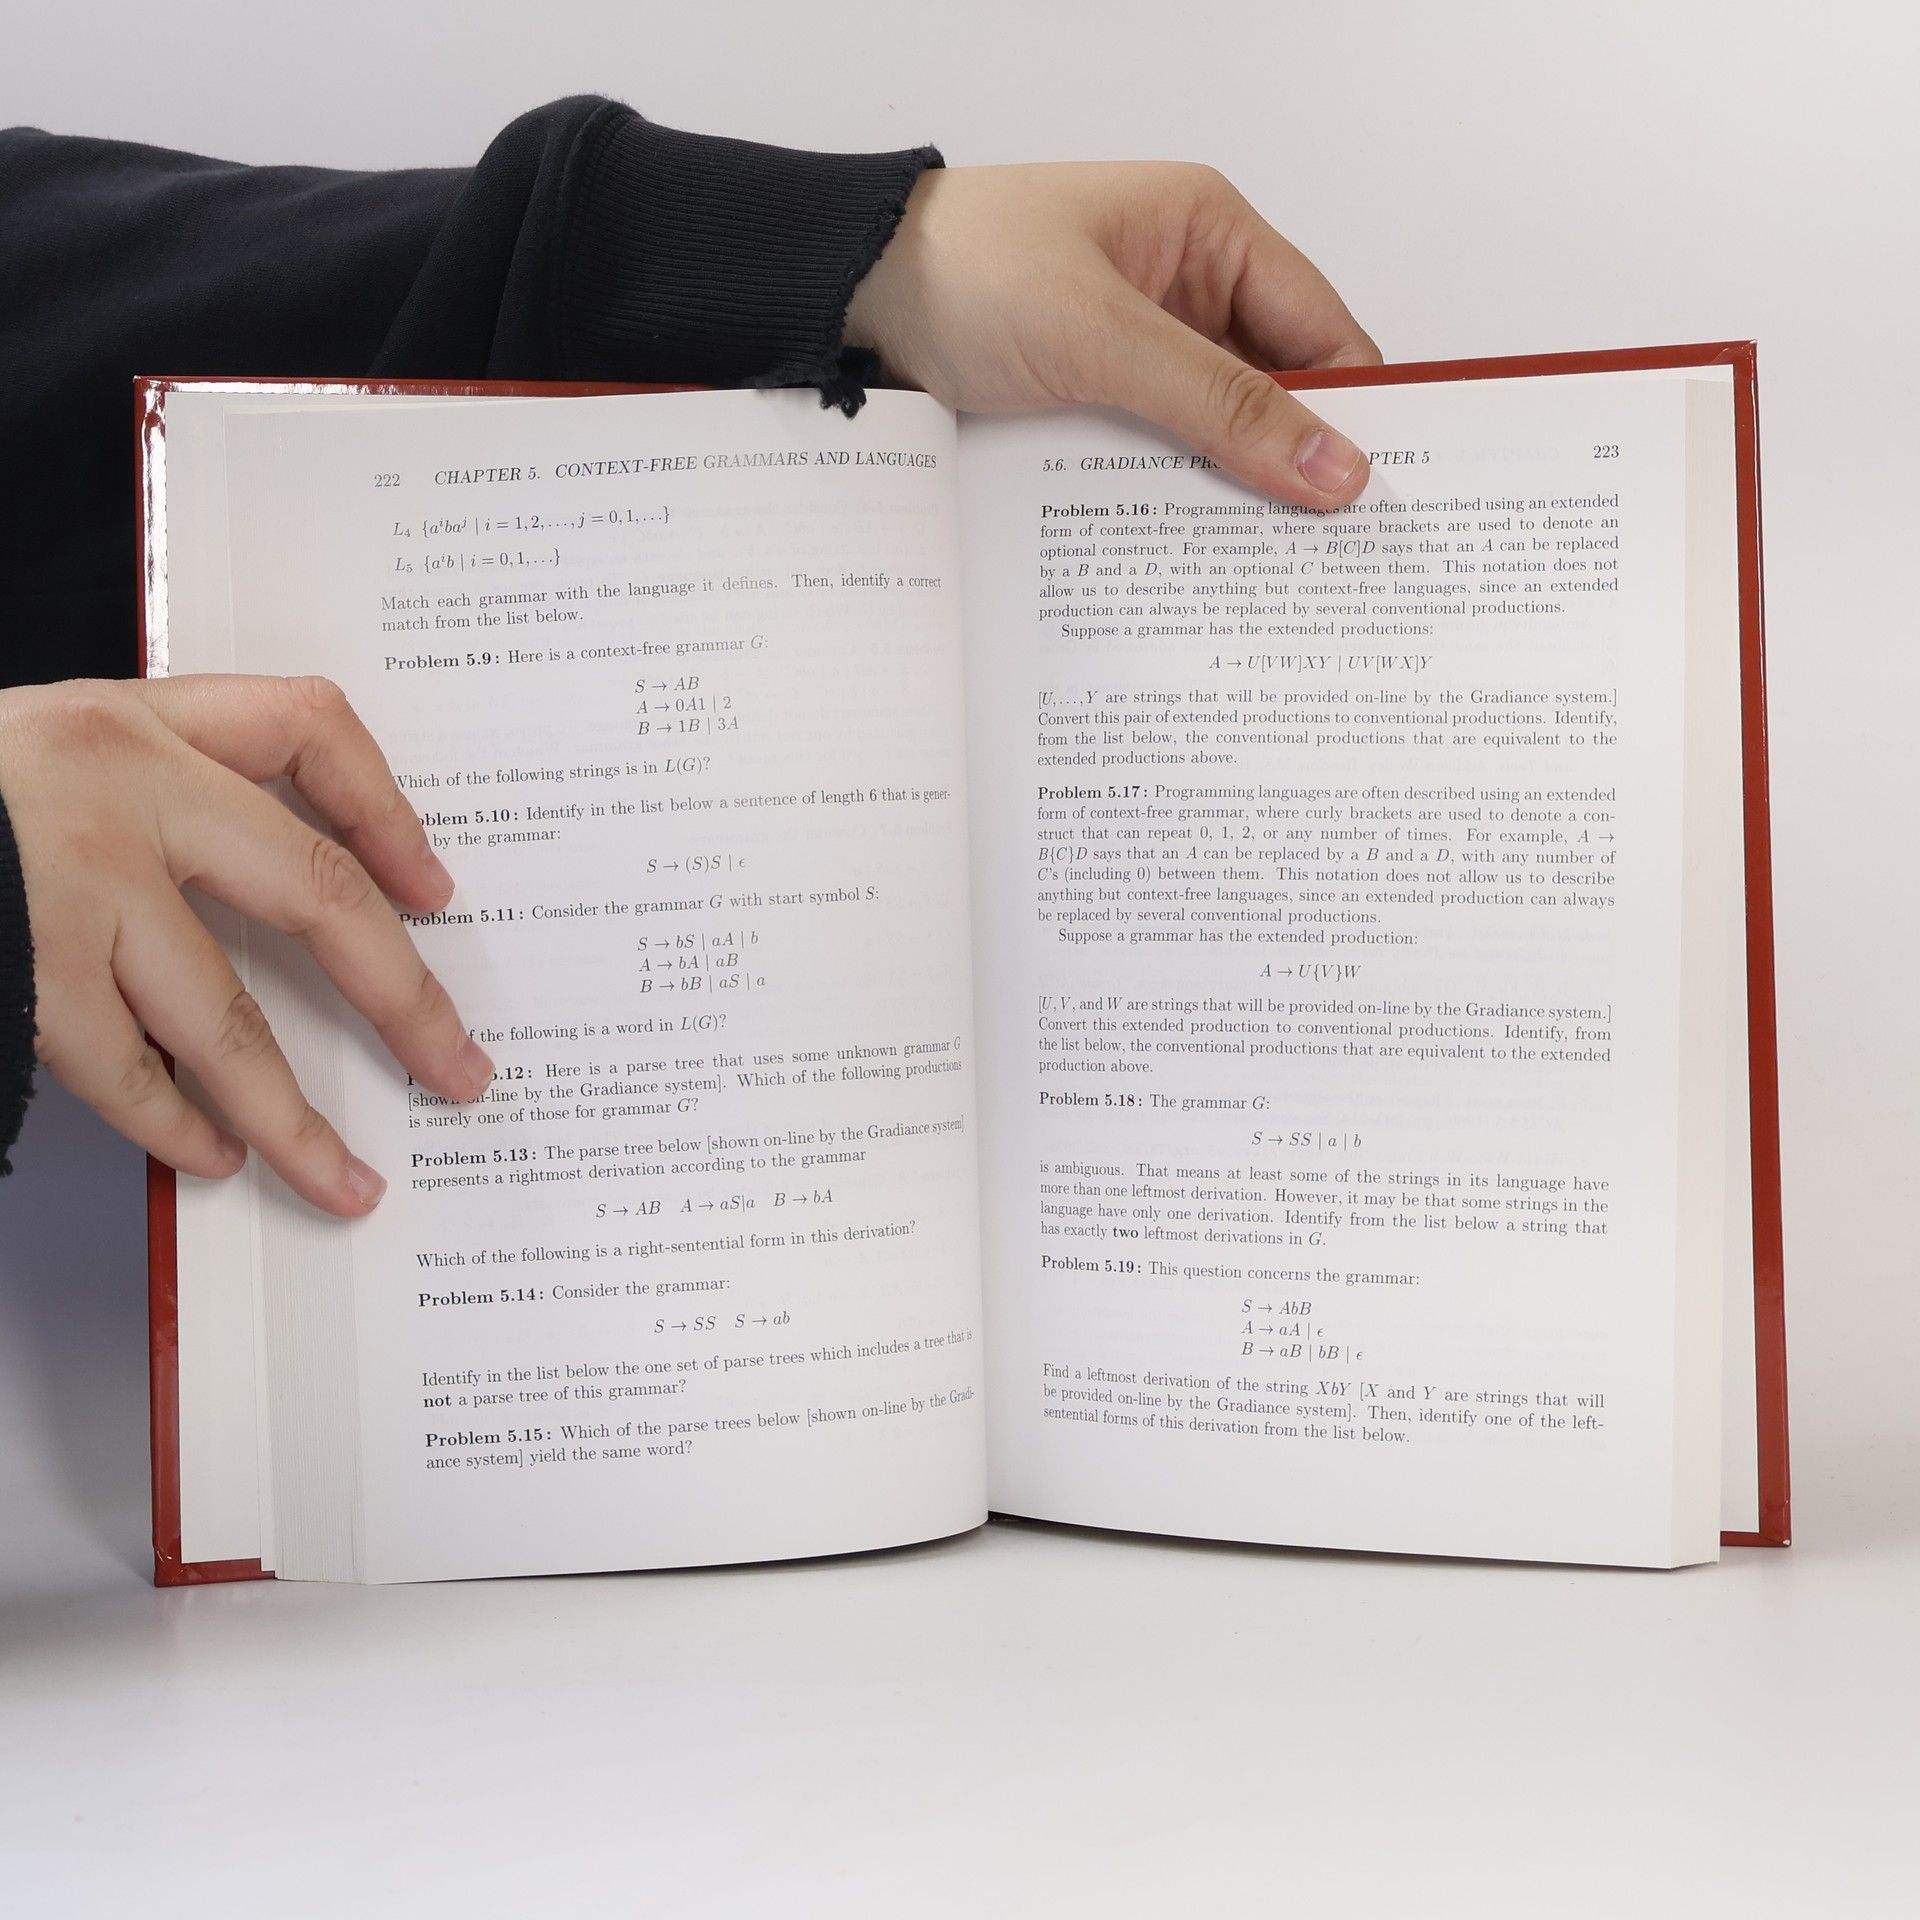 222 CHAPTER 5. CONTEXT-FREE GRAMMARS AND LANGUAGES
L₄ {aⁱbaʲ | i = 1, 2, . . . , j = 0, 1, . . .}
L₅ {aⁱb | i = 0, 1, . . .}
Match each grammar with the language it defines. Then, identify a correct
match from the list below.
Problem 5.9: Here is a context-free grammar G:
S → AB
A → 0A1 | 2
B → 1B | 3A
Which of the following strings is in L(G)?
5.10: Identify in the list below a sentence of length 6 that is gener-
by the grammar:
S → (S)S | ϵ
Problem 5.11: Consider the grammar G with start symbol S:
S → bS | aA | b
A → bA | aB
B → bB | aS | a
the following is a word in L(G)?
5.12: Here is a parse tree that uses some unknown grammar G
[shown on-line by the Gradiance system]. Which of the following productions
is surely one of those for grammar G?
Problem 5.13: The parse tree below [shown on-line by the Gradiance system]
represents a rightmost derivation according to the grammar
S → AB A → aS|a B → bA
Which of the following is a right-sentential form in this derivation?
Problem 5.14: Consider the grammar:
S → SS S → ab
Identify in the list below the one set of parse trees which includes a tree that is
not a parse tree of this grammar?
Problem 5.15: Which of the parse trees below [shown on-line by the Gradi-
ance system] yield the same word?
5.6. GRADIANCE 5 223
Problem 5.16: Programming languages are often described using an extended
form of context-free grammar, where square brackets are used to denote an
optional construct. For example, A → B[C]D says that an A can be replaced
by a B and a D, with an optional C between them. This notation does not
allow us to describe anything but context-free languages, since an extended
production can always be replaced by several conventional productions.
Suppose a grammar has the extended productions:
A → U[VW]XY | UV[WX]Y
[U, . . . , Y are strings that will be provided on-line by the Gradiance system.]
Convert this pair of extended productions to conventional productions. Identify,
from the list below, the conventional productions that are equivalent to the
extended productions above.
Problem 5.17: Programming languages are often described using an extended
form of context-free grammar, where curly brackets are used to denote a con-
struct that can repeat 0, 1, 2, or any number of times. For example, A →
B{C}D says that an A can be replaced by a B and a D, with any number of
C's (including 0) between them. This notation does not allow us to describe
anything but context-free languages, since an extended production can always
be replaced by several conventional productions.
Suppose a grammar has the extended production:
A → U{V}W
[U, V, and W are strings that will be provided on-line by the Gradiance system.]
Convert this extended production to conventional productions. Identify, from
the list below, the conventional productions that are equivalent to the extended
production above.
Problem 5.18: The grammar G:
S → SS | a | b
is ambiguous. That means at least some of the strings in its language have
more than one leftmost derivation. However, it may be that some strings in the
language have only one derivation. Identify from the list below a string that
has exactly two leftmost derivations in G.
Problem 5.19: This question concerns the grammar:
S → AbB
A → aA | ϵ
B → aB | bB | ϵ
Find a leftmost derivation of the string XbY [X and Y are strings that will
be provided on-line by the Gradiance system]. Then, identify one of the left-
sentential forms of this derivation from the list below.